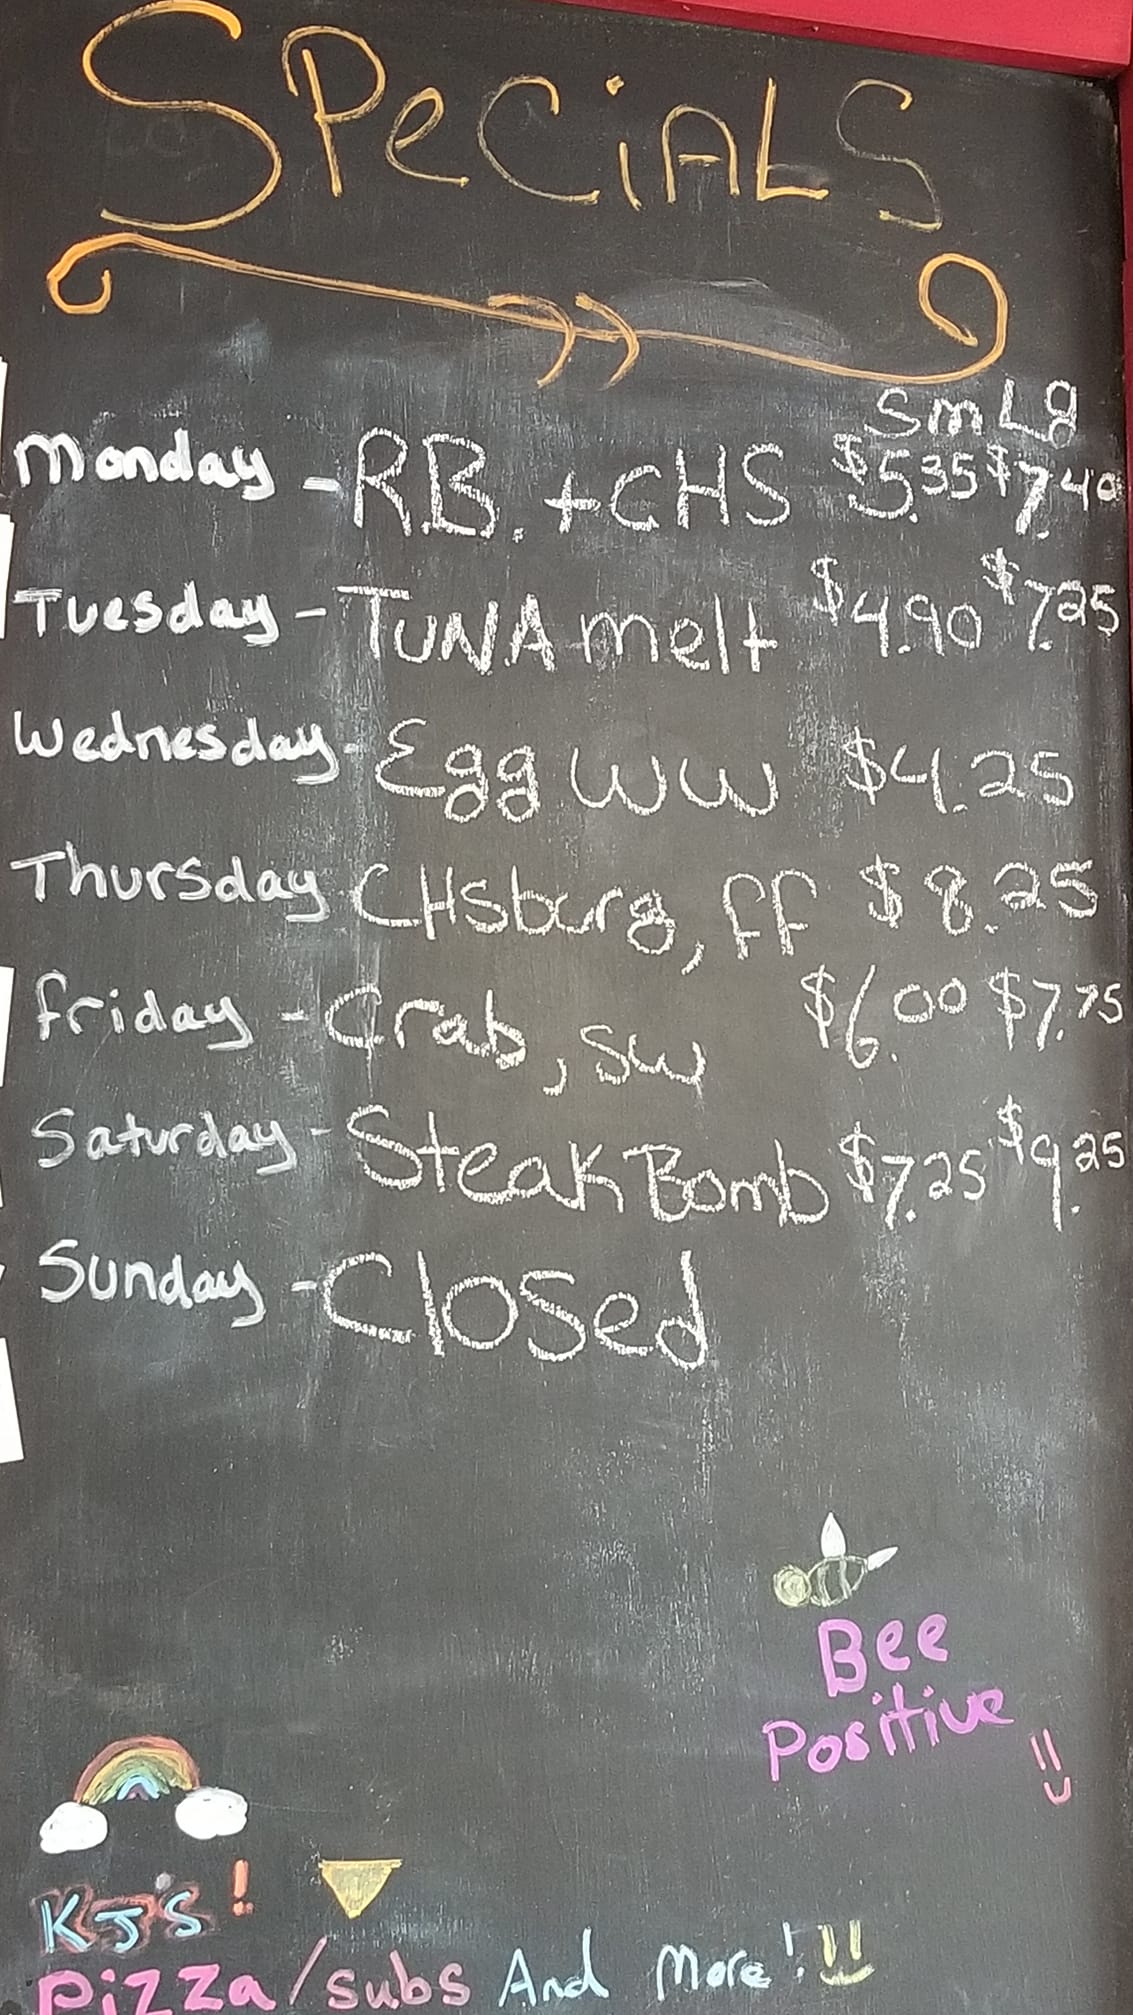 SPeCiALS
Sm Lg
Monday - R.B. + CHS $5.35 $7.40
Tuesday - TUNA melt $4.90 $7.25
Wednesday - Egg WW $4.25
Thursday CHsburg, FF $8.25
Friday - Crab, SW $6.00 $7.75
Saturday - Steak Bomb $7.25 $9.25
Sunday - Closed
Bee
Positive
KJ's!
Pizza/subs And More!